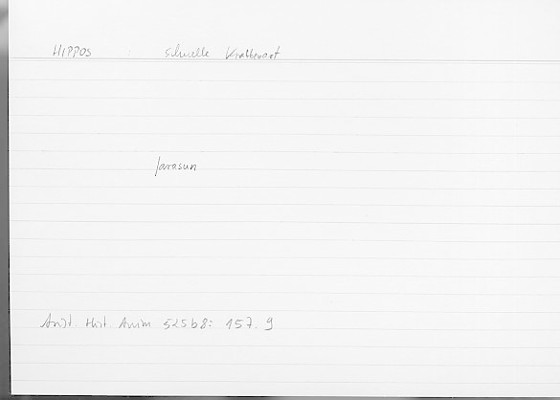 HIPPOS schnelle Krabbenart
farasun
Arist. Hist. Anim 525b8: 157. 9